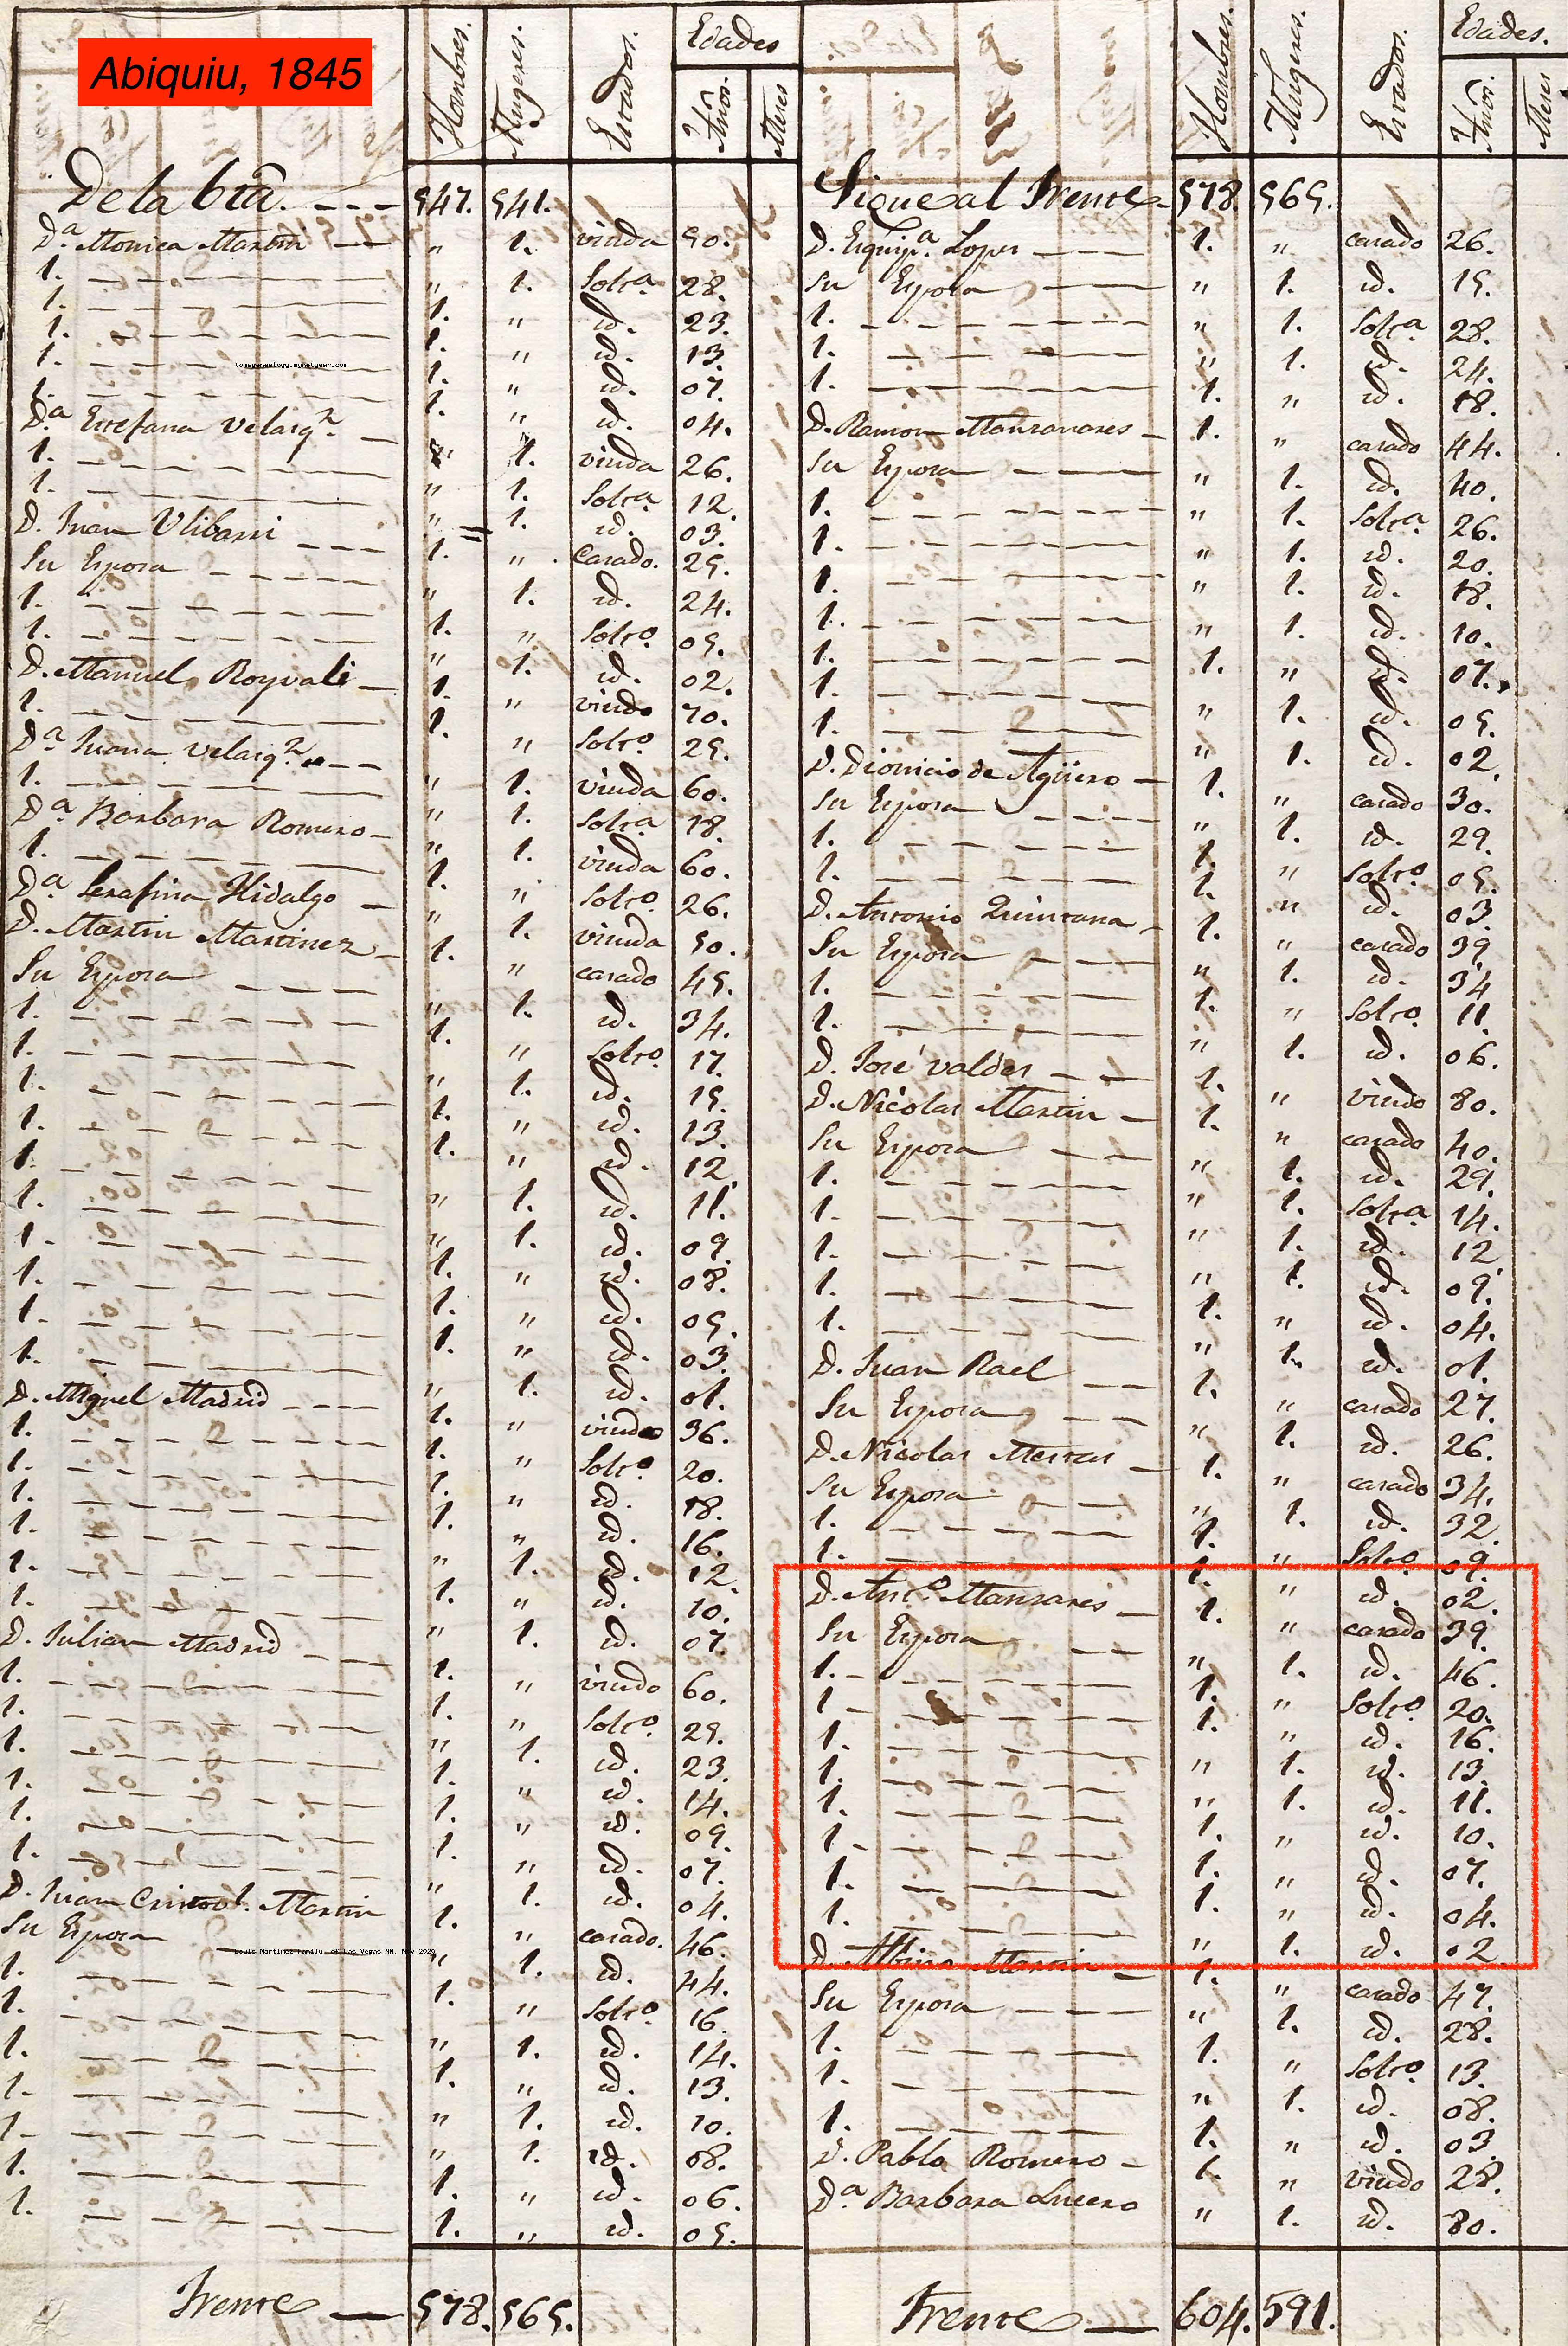 Abiquiu, 1845
Hombres. Mugeres. Estados. Edades Años. Meses
De la bta. 547. 541.
D.ª Monica Martin " 1. viuda 50.
1. " 1. Solt.ª 28.
1. 1. " id. 23.
1. 1. " id. 13.
1. 1. " id. 07.
1. 1. " id. 04.
D.ª Estefana Velasq.z " 1. viuda 26.
1. " 1. Solt.ª 12.
1. " 1. id. 03.
D. Juan Ulibarri 1. " Casado. 25.
Su Esposa " 1. id. 24.
1. 1. " Solt.º 05.
1. " 1. id. 02.
D. Manuel Roybali 1. " viudo 70.
1. 1. " Solt.º 25.
D.ª Juana Velasq.z " 1. viuda 60.
1. " 1. Solt.ª 18.
D.ª Barbara Romero " 1. viuda 60.
1. 1. " Solt.º 26.
D.ª Serafina Hidalgo " 1. viuda 50.
D. Martin Martinez 1. " casado 45.
Su Esposa " 1. id. 34.
1. 1. " Solt.º 17.
1. " 1. id. 15.
1. 1. " id. 13.
1. 1. " id. 12.
1. " 1. id. 11.
1. " 1. id. 09.
1. 1. " id. 08.
1. 1. " id. 05.
1. 1. " id. 03.
1. " 1. id. 01.
D. Miguel Madrid 1. " viudo 36.
1. 1. " Solt.º 20.
1. 1. " id. 18.
1. 1. " id. 16.
1. " 1. id. 12.
1. 1. " id. 10.
1. " 1. id. 07.
D. Julian Madrid 1. " viudo 60.
1. 1. " Solt.º 25.
1. " 1. id. 23.
1. 1. " id. 14.
1. 1. " id. 09.
1. 1. " id. 07.
1. " 1. id. 04.
D. Juan Cristobl. Martin 1. " casado. 46.
Su Esposa " 1. id. 44.
1. 1. " Solt.º 16.
1. " 1. id. 14.
1. 1. " id. 13.
1. " 1. id. 10.
1. " 1. id. 08.
1. 1. " id. 06.
1. 1. " id. 05.
Frente 578. 565.
Hombres. Mugeres. Estados. Edades. Años. Meses
Sigue al Frente 578. 565.
D. Esquip.ª Lopes 1. " casado 26.
Su Esposa " 1. id. 15.
1. " 1. Solt.ª 28.
1. " 1. id. 24.
1. 1. " id. 18.
D. Ramon Manzanares 1. " casado 44.
Su Esposa " 1. id. 40.
1. " 1. Solt.ª 26.
1. " 1. id. 20.
1. " 1. id. 18.
1. " 1. id. 10.
1. 1. " id. 07.
1. " 1. id. 05.
1. " 1. id. 02.
D. Dionicio de Agüero 1. " casado 30.
Su Esposa " 1. id. 29.
1. 1. " Solt.º 05.
1. 1. " id. 03
D. Antonio Quintana 1. " casado 39
Su Esposa " 1. id. 34
1. 1. " Solt.º 11.
1. " 1. id. 06.
D. José Valdes 1. " viudo 80.
D. Nicolas Martin 1. " casado 40.
Su Esposa " 1. id. 29.
1. " 1. Solt.ª 14.
1. " 1. id. 12
1. " 1. id. 09.
1. 1. " id. 04.
1. " 1. id. 01.
D. Juan Rael 1. " casado 27.
Su Esposa " 1. id. 26.
D. Nicolas Mestas 1. " casado 34.
Su Esposa " 1. id. 32
1. 1. " Solt.º 09.
1. 1. " id. 02.
D. Ant.º Mansares 1. " casado 39.
Su Esposa " 1. id. 46.
1. 1. " Solt.º 20.
1. 1. " id. 16.
1. " 1. id. 13.
1. " 1. id. 11.
1. 1. " id. 10.
1. 1. " id. 07.
1. 1. " id. 04.
1. " 1. id. 02
D. Albino Martin 1. " casado 47.
Su Esposa " 1. id. 28.
1. 1. " Solt.º 13.
1. " 1. id. 08.
1. 1. " id. 03
D. Pablo Romero 1. " viudo 28.
D.ª Barbara Lucero " 1. id. 80.
Frente 604. 591.
tomsgenealogy.mynetgear.com
Louis Martinez Family, of Las Vegas NM, Nov 2020